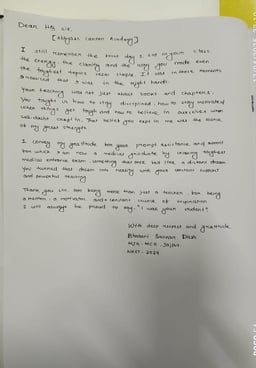 Dear HQ sir,
[Abhyas Career Academy]
I still remember the first day I sat in your class
the energy, the clarity and the way you made even
the toughest topics seem simple. It was in those moments
I realised that I was in the right hands.
Your teaching was not just about books and chapters.
You taught us how to stay disciplined, how to stay motivated
when things get tough and how to believe in ourselves when
self-doubt creeps in. That belief you kept in me was the source
of my great strength
I convey my gratitude for your prompt assistance and support
for which I am now a medical graduate by cracking toughest
medical entrance exam. something that once felt like a distant dream
you turned that dream into reality with your constant support
and powerful teaching.
Thank you sir, for being more than just a teacher. for being
a mentor, a motivator and a constant source of inspiration
I will always be proud to say, "I was your student".
With deep respect and gratitude
Dash
NEET - 2024